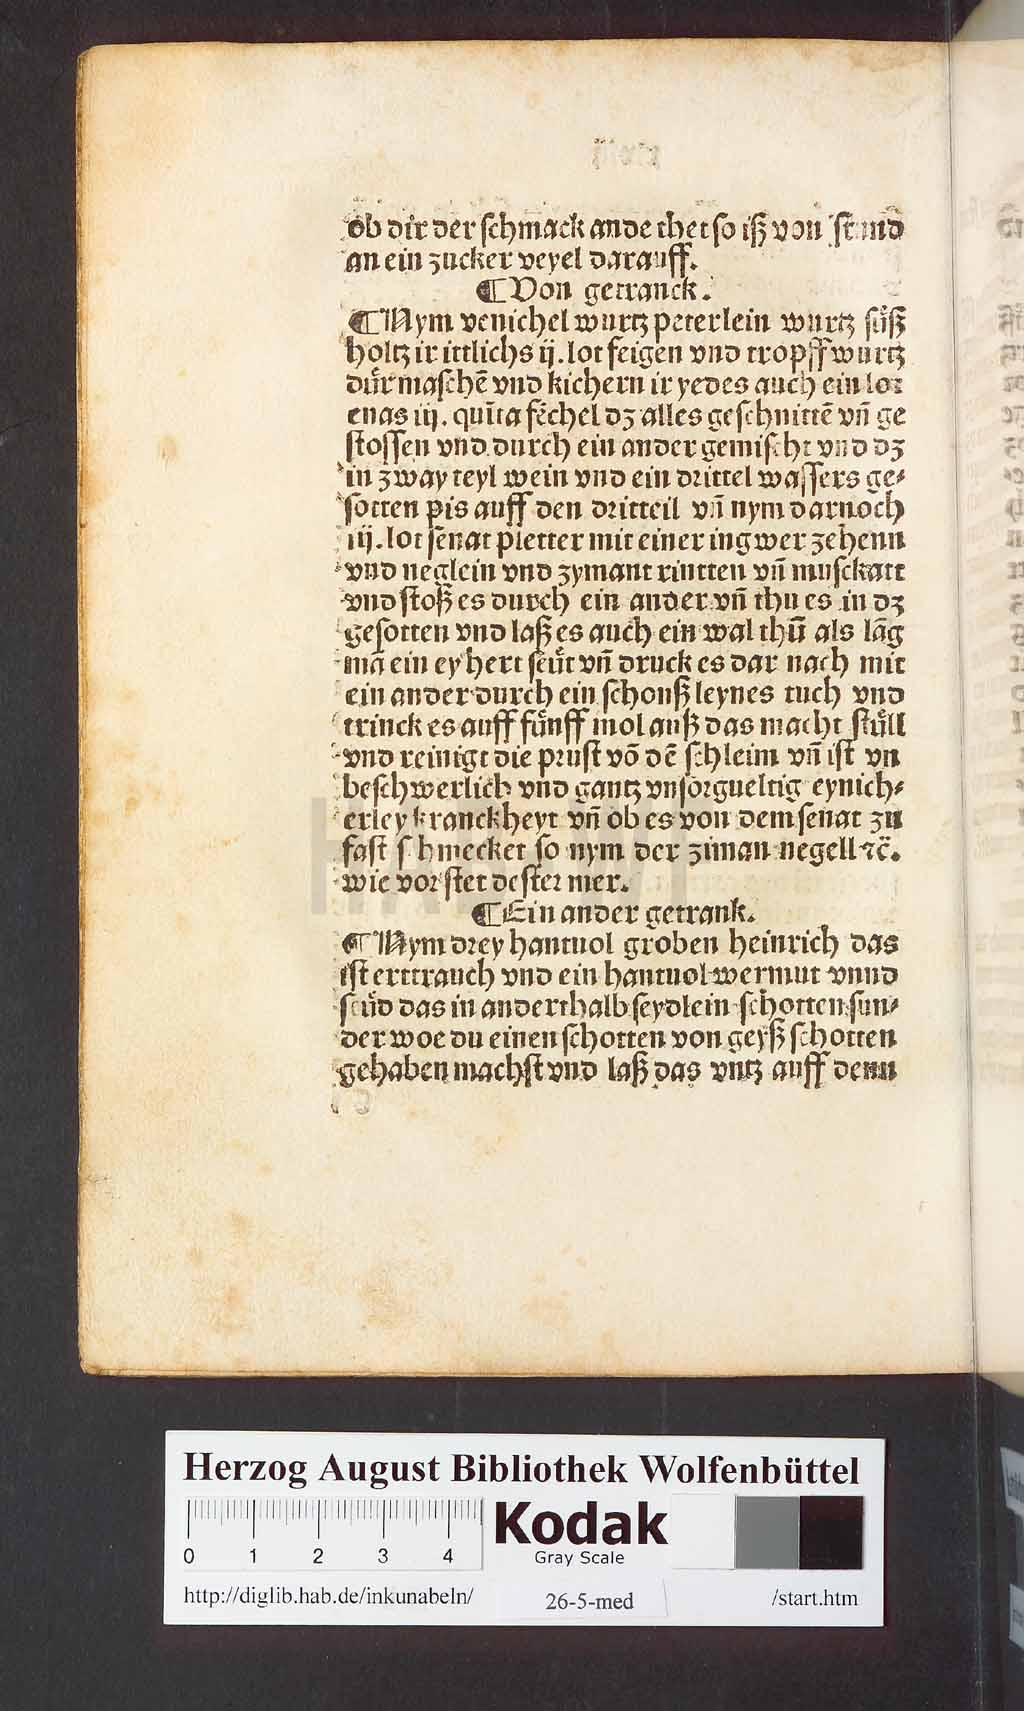 ob dir der ſchmack ande thet so iß von ſtund
an ein zucker veyel darauff.
¶ Von getranck.
¶ Nym venichel wurtz peterlein wurtz ſuͤß
holtz ir ittlichs ij. lot feigen vnd tropffwurtz
duͤr maſchē vnd kichern ir yedes auch ein lot
enas iij. quīta fēchel dz alles geſchnittē vn̄ ge
ſtoſſen vnd durch ein ander gemiſcht vnd dz
in zway teyl wein vnd ein drittel waſſers ge⸗
ſotten pis auff den dritteil vn̄ nym darnoch
iij. lot ſenat pletter mit einer ingwer zehenn
vnd neglein vnd zymant rintten vn̄ muſckatt
vnd ſtoß es durch ein ander vn̄ thu es in dz
geſotten vnd laß es auch ein wal thū als lāg
mā ein ey hert ſeuͤt vn̄ druck es dar nach mit
ein ander durch ein ſchonß leynes tuch vnd
trinck es auff fuͤnff mol auß das macht ſtuͤll
vnd reinigt die pruſt vō dē ſchleim vn̄ iſt vn
beſchwerlich vnd gantz vnſorgueltig eynich⸗
erley kranckheyt vn̄ ob es von dem ſenat zu
faſt ſchmecket ſo nym der ziman negell ꝛc̄.
wie vor ſtet deſter mer.
¶ Ein ander getrank.
¶ Nym drey hantuol groben heinrich das
iſt erttrauch vnd ein hantuol wermut vnnd
ſeuͤd das in anderthalb ſeydlein ſchotten ſun⸗
der woe du einen ſchotten von geyß ſchotten
gehaben machſt vnd laß das vntz auff denn
HAB WF
Herzog August Bibliothek Wolfenbüttel
0 1 2 3 4
Kodak
Gray Scale
http://diglib.hab.de/inkunabeln/ 26-5-med /start.htm